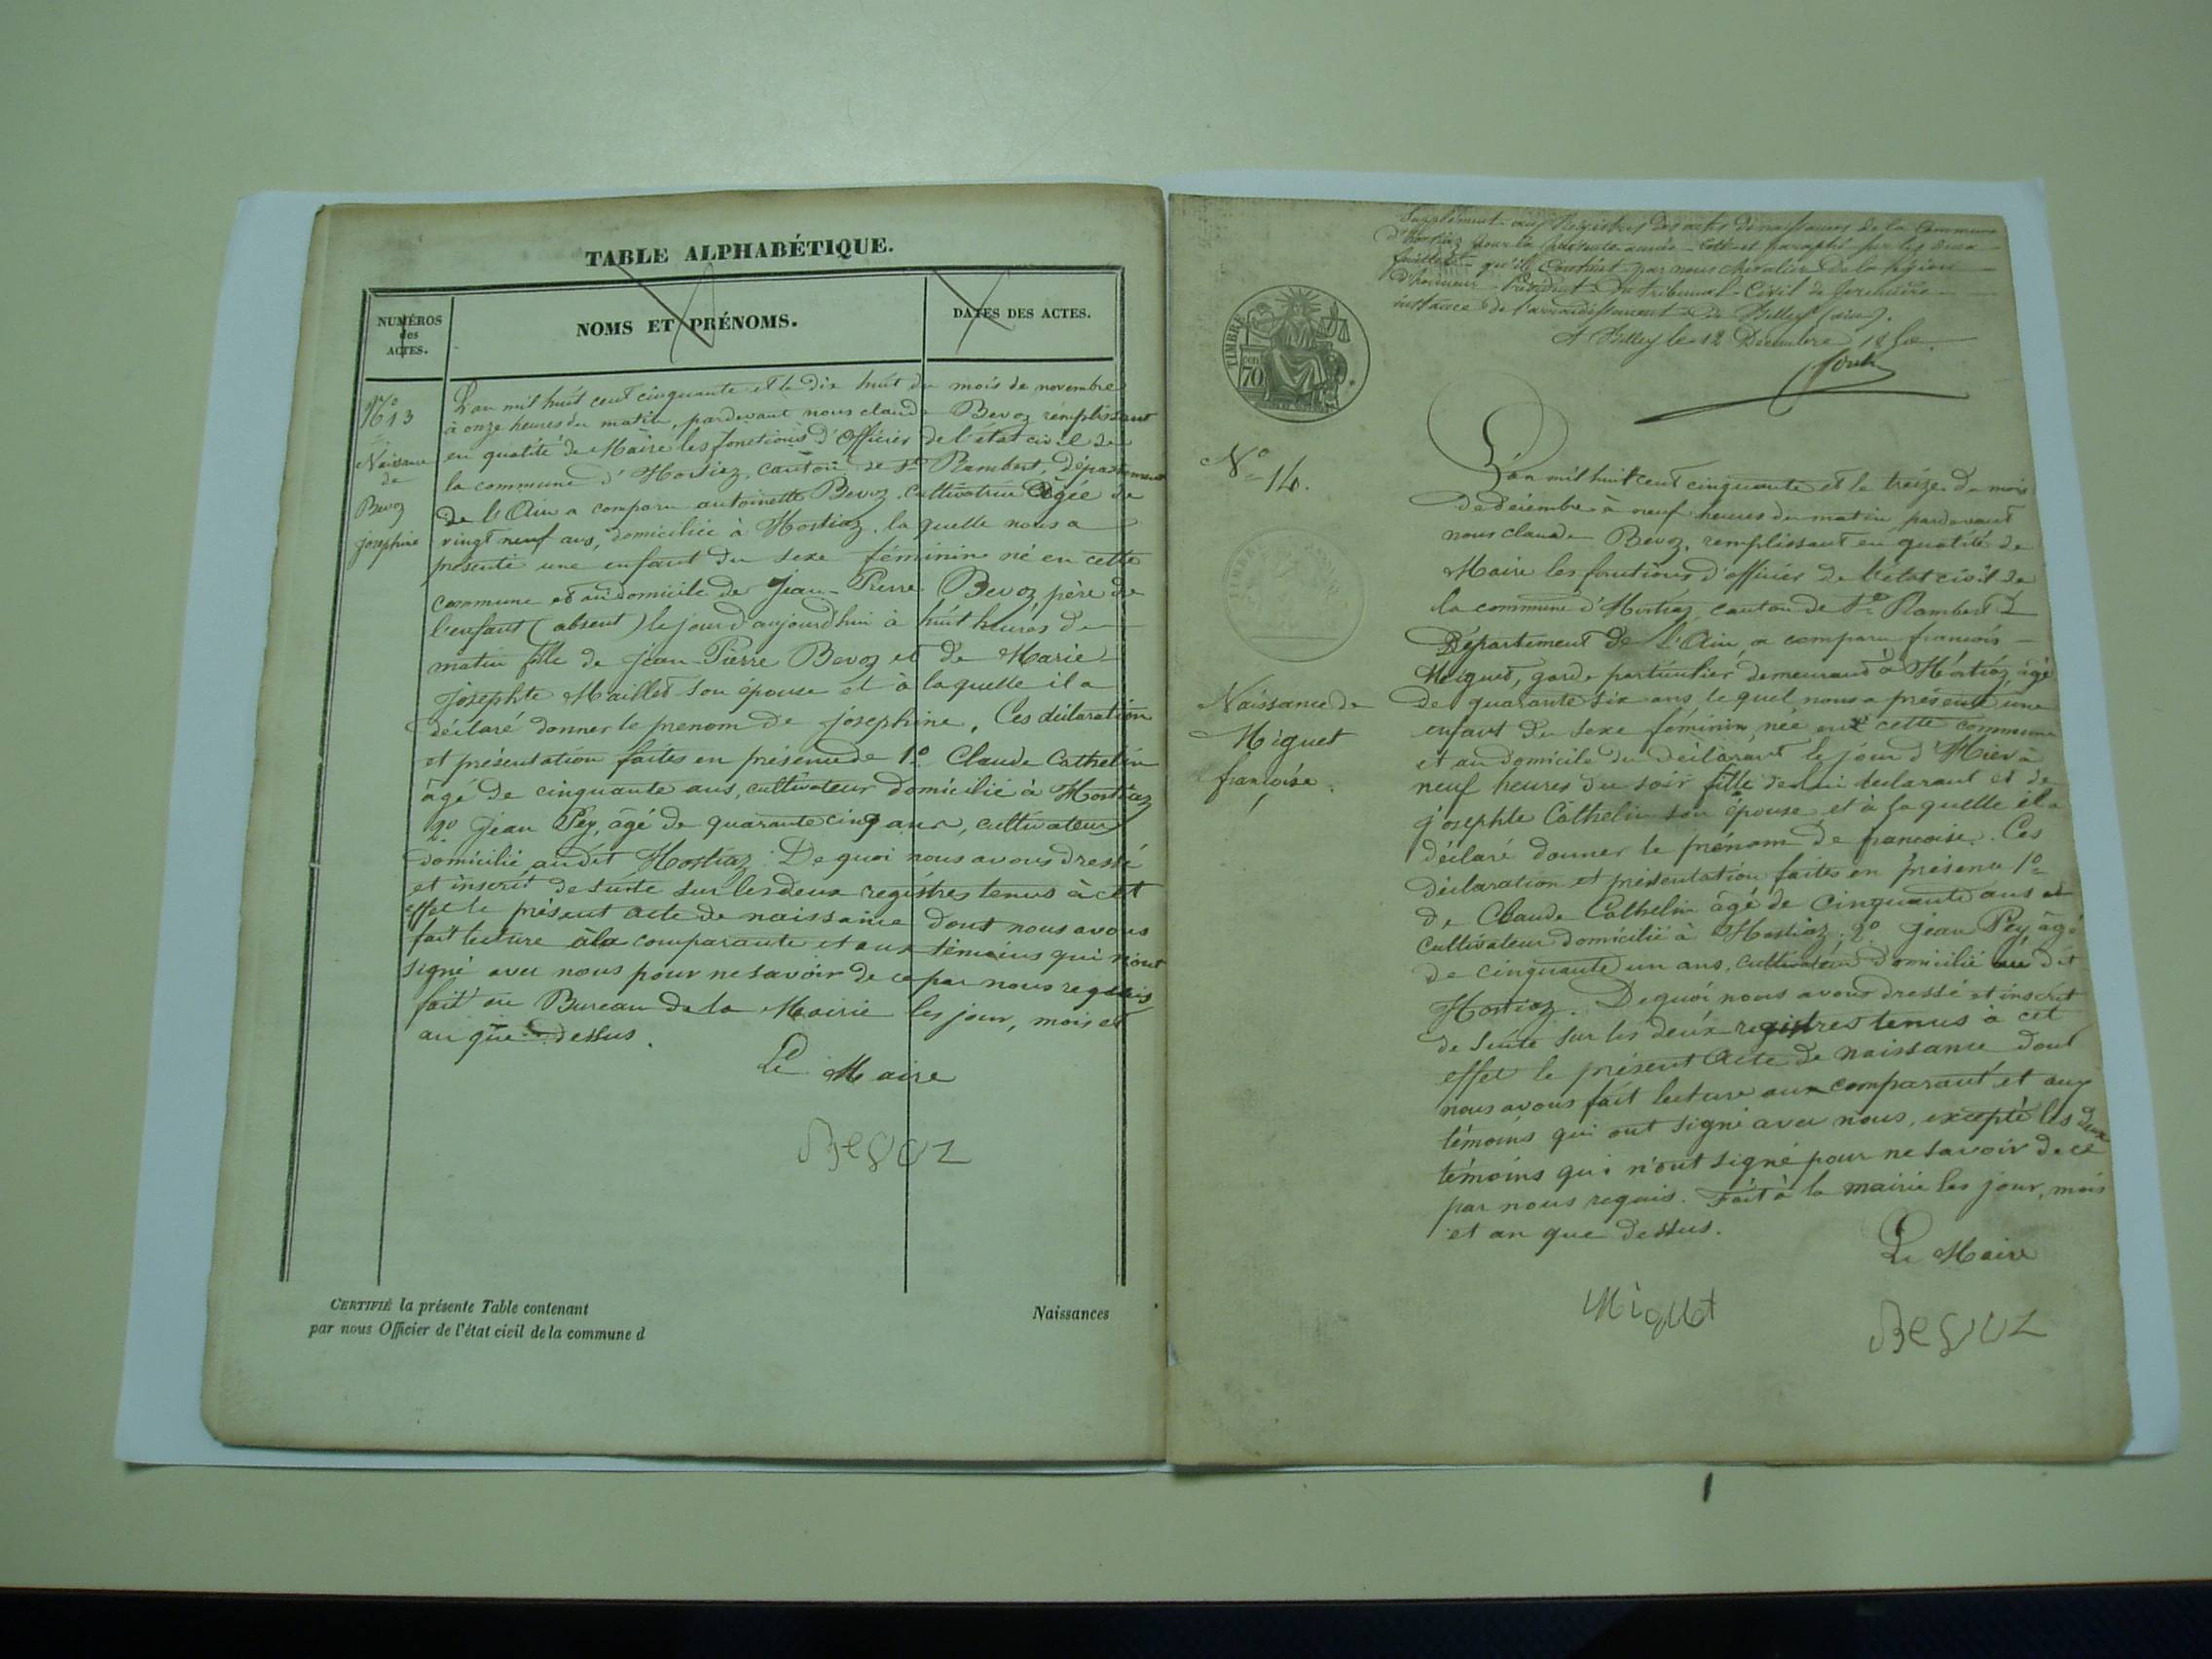 TABLE ALPHABÉTIQUE.
NUMÉROS
des
ACTES.
NOMS ET PRÉNOMS.
DATES DES ACTES.
N° 13
Naissance
de
Bevoz
josephine
L'an mil huit cent cinquante et le dix huit du mois de novembre
à onze heures du matin, pardevant nous claude Bevoz remplissant
en qualité de Maire les fonctions d'Officier de l'état civil de
la commune d'Hostiaz, canton de St Rambert, département
de l'Ain a comparu antoinette Bevoz, cultivatrice âgée de
vingt neuf ans, domiciliée à Hostiaz, la quelle nous a
présenté une enfant du sexe féminin né en cette
commune et au domicile de Jean-Pierre Bevoz père de
l'enfant (absent) le jour d'aujourd'hui à huit heures du
matin fille de Jean-Pierre Bevoz et de Marie
Josephte Maillet son épouse et à laquelle il a
déclaré donner le prenom de josephine. Ces déclaration
et présentation faites en présence de 1° Claude Cathelin
âgé de cinquante ans, cultivateur domicilié à Hostiaz
2° Jean Pey, âgé de quarante cinq ans, cultivateur
domicilié audit Hostiaz. De quoi nous avons dressé
et inscrit de suite sur les deux registres tenus à cet
effet le présent acte de naissance dont nous avons
fait lecture à la comparante et aux témoins qui n'ont
signé avec nous pour ne savoir de ce par nous requis
fait en Bureau de la Mairie les jour, mois et
an que dessus.
Le Maire
Bevoz
CERTIFIÉ la présente Table contenant
par nous Officier de l'état civil de la commune d
Naissances
Supplément aux Registres des actes de naissances de la Commune
d'hostiaz pour la présente année - Coté et paraphé sur les deux
feuillets qu'il contient par nous chevalier de la légion
d'honneur Président du tribunal Civil de première
instance de l'arrondissement de Belley (ain).
A Belley le 12 Décembre 1850.
TIMBRE
70
N° 14.
Naissance de
Miguet
françoise.
L'an mil huit cent cinquante et le treize du mois
de décembre à neuf heures du matin pardevant
nous claude Bevoz, remplissant en qualité de
Maire les fonctions d'officier de l'état civil de
la commune d'Hostiaz, canton de St Rambert
Département de l'Ain, a comparu françois
Miguet, garde particulier demeurant à Hostiaz, âgé
de quarante six ans, le quel nous a présenté une
enfant du sexe féminin née en cette commune
et au domicile du déclarant le jour d'Hier à
neuf heures du soir fille de lui déclarant et de
josephte Cathelin son épouse et à laquelle il a
déclaré donner le prénom de francoise. Ces
déclaration et présentation faites en présence 1°
de Claude Cathelin âgé de cinquante ans
cultivateur domicilié à Hostiaz. 2° Jean Pey, âgé
de cinquante un ans, cultivateur domicilié au dit
Hostiaz. De quoi nous avons dressé et inscrit
de suite sur les deux registres tenus à cet
effet le présent acte de naissance dont
nous avons fait lecture aux comparant et aux
témoins qui ont signé avec nous, excepté les deux
témoins qui n'ont signé pour ne savoir de ce
par nous requis. Fait à la mairie les jour, mois
et an que dessus.
Le Maire
Miguet
Bevoz